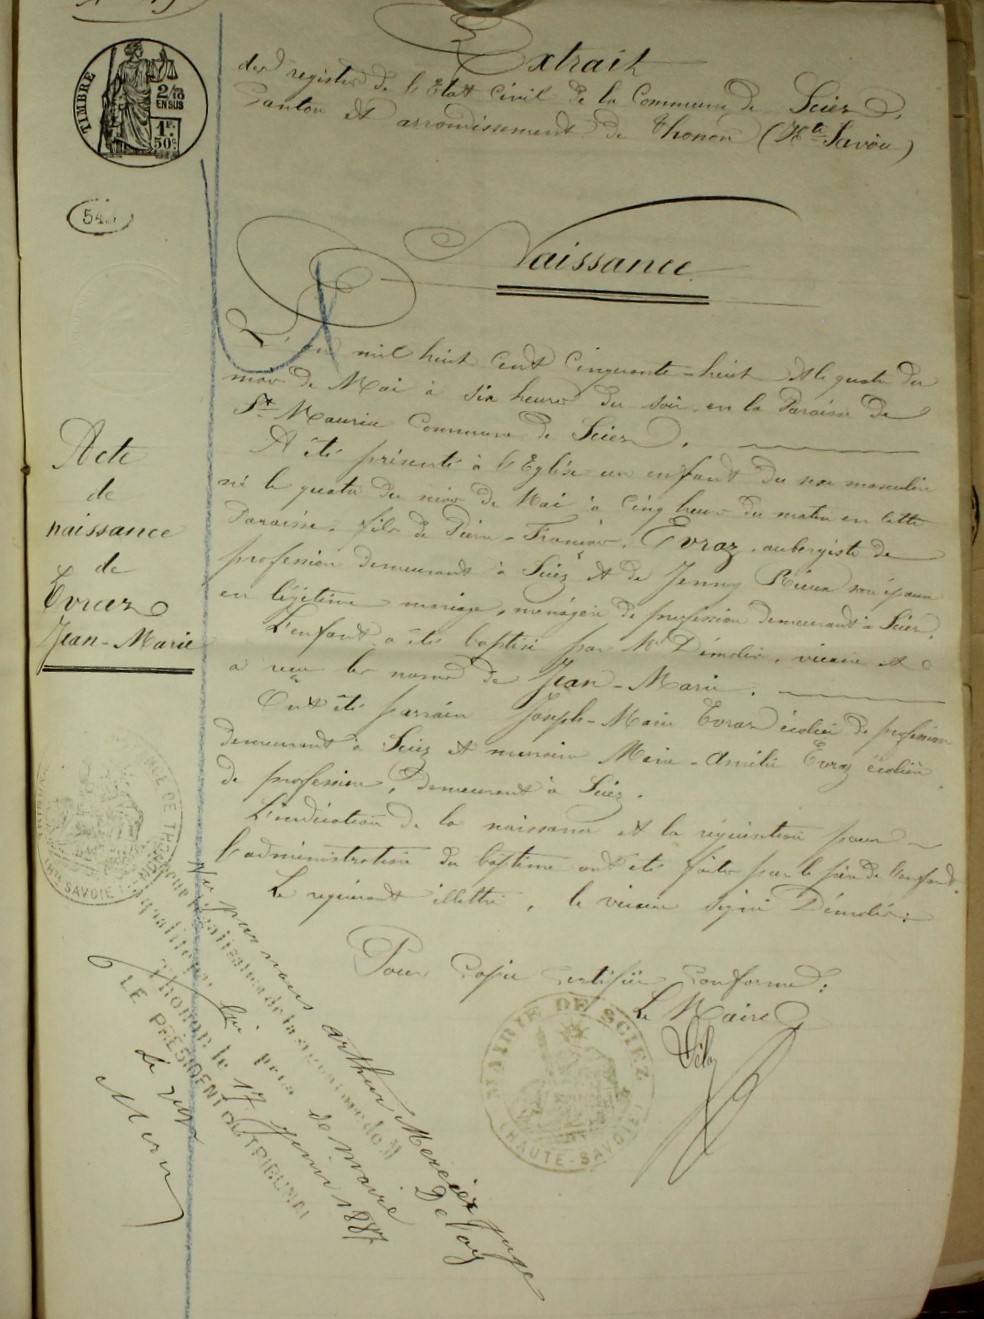 TIMBRE
2/10
EN SUS
1F.
50c
Extrait
des registres de l'Etat Civil de la Commune de Sciez,
Canton et arrondissement de Thonon (Hte Savoie)
Naissance
L'an mil huit cent cinquante-huit et le quatre du
mois de Mai à six heures du soir en la Paroisse de
St Maurice Commune de Sciez.
A été présenté à l'Eglise un enfant du sexe masculin
né le quatre du mois de Mai à cinq heures du matin en cette
Paroisse, fils de Pierre-François Evraz, aubergiste de
profession demeurant à Sciez et de Jenny Rieux son épouse
en légitime mariage, ménagère de profession demeurant à Sciez.
L'enfant a été baptisé par Mr Démolis, vicaire et
a reçu les noms de Jean-Marie.
Ont été parrain Joseph-Marie Evraz écolier de profession
demeurant à Sciez et marraine Marie-Amélie Evraz écolière
de profession, demeurant à Sciez.
L'indication de la naissance et la réquisition pour
l'administration du baptême ont été faites par le père de l'enfant.
Le requérant illettré, le vicaire signé Démolis.
Pour Copie Certifiée Conforme:
Le Maire
MAIRIE DE SCIEZ
(HAUTE-SAVOIE)
Acte
de
naissance
de
Evraz
Jean-Marie
(HTE SAVOIE)
Vu par nous Arthur Mercier juge
légalisation de la signature de M De Voy
qualité de maire
Thonon le 17 juin 1887
LE PRÉSIDENT DU TRIBUNAL